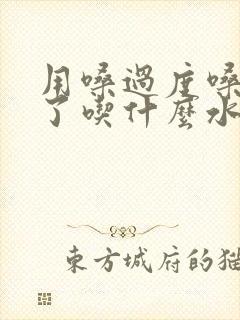 用嗓過度嗓
了喫什麼水
東方城府的猫